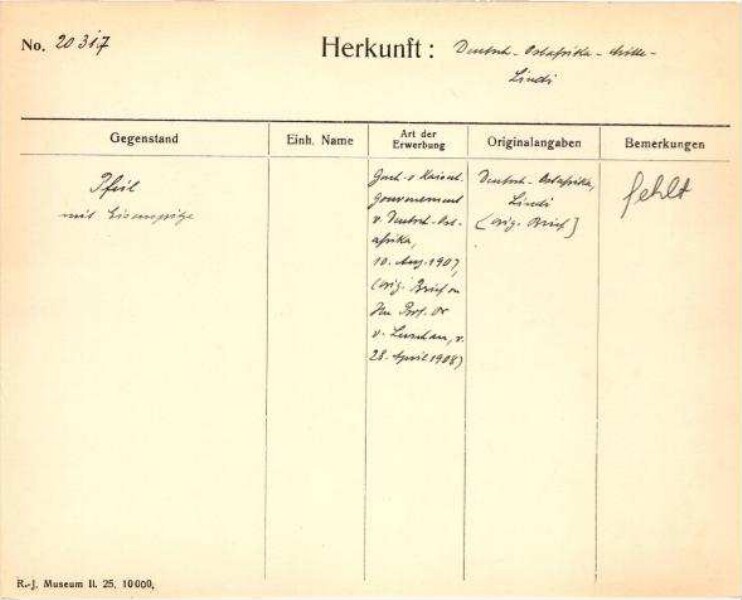 No. 20317 Herkunft: Deutsch-Ostafrika-
Lindi
Gegenstand Einh. Name Art der Erwerbung Originalangaben Bemerkungen
Pfeil
mit Eisenspitze
Gesch. v. Kaiserl.
Gouvernement
v. Deutsch-Ost-
afrika,
10. Aug. 1907,
(orig. Brief an
Hn Prof. Dr
v. Luschan, v.
28. April 1908)
Deutsch-Ostafrika,
Lindi
(orig. Brief)
fehlt
R.-J. Museum II. 25. 10000.